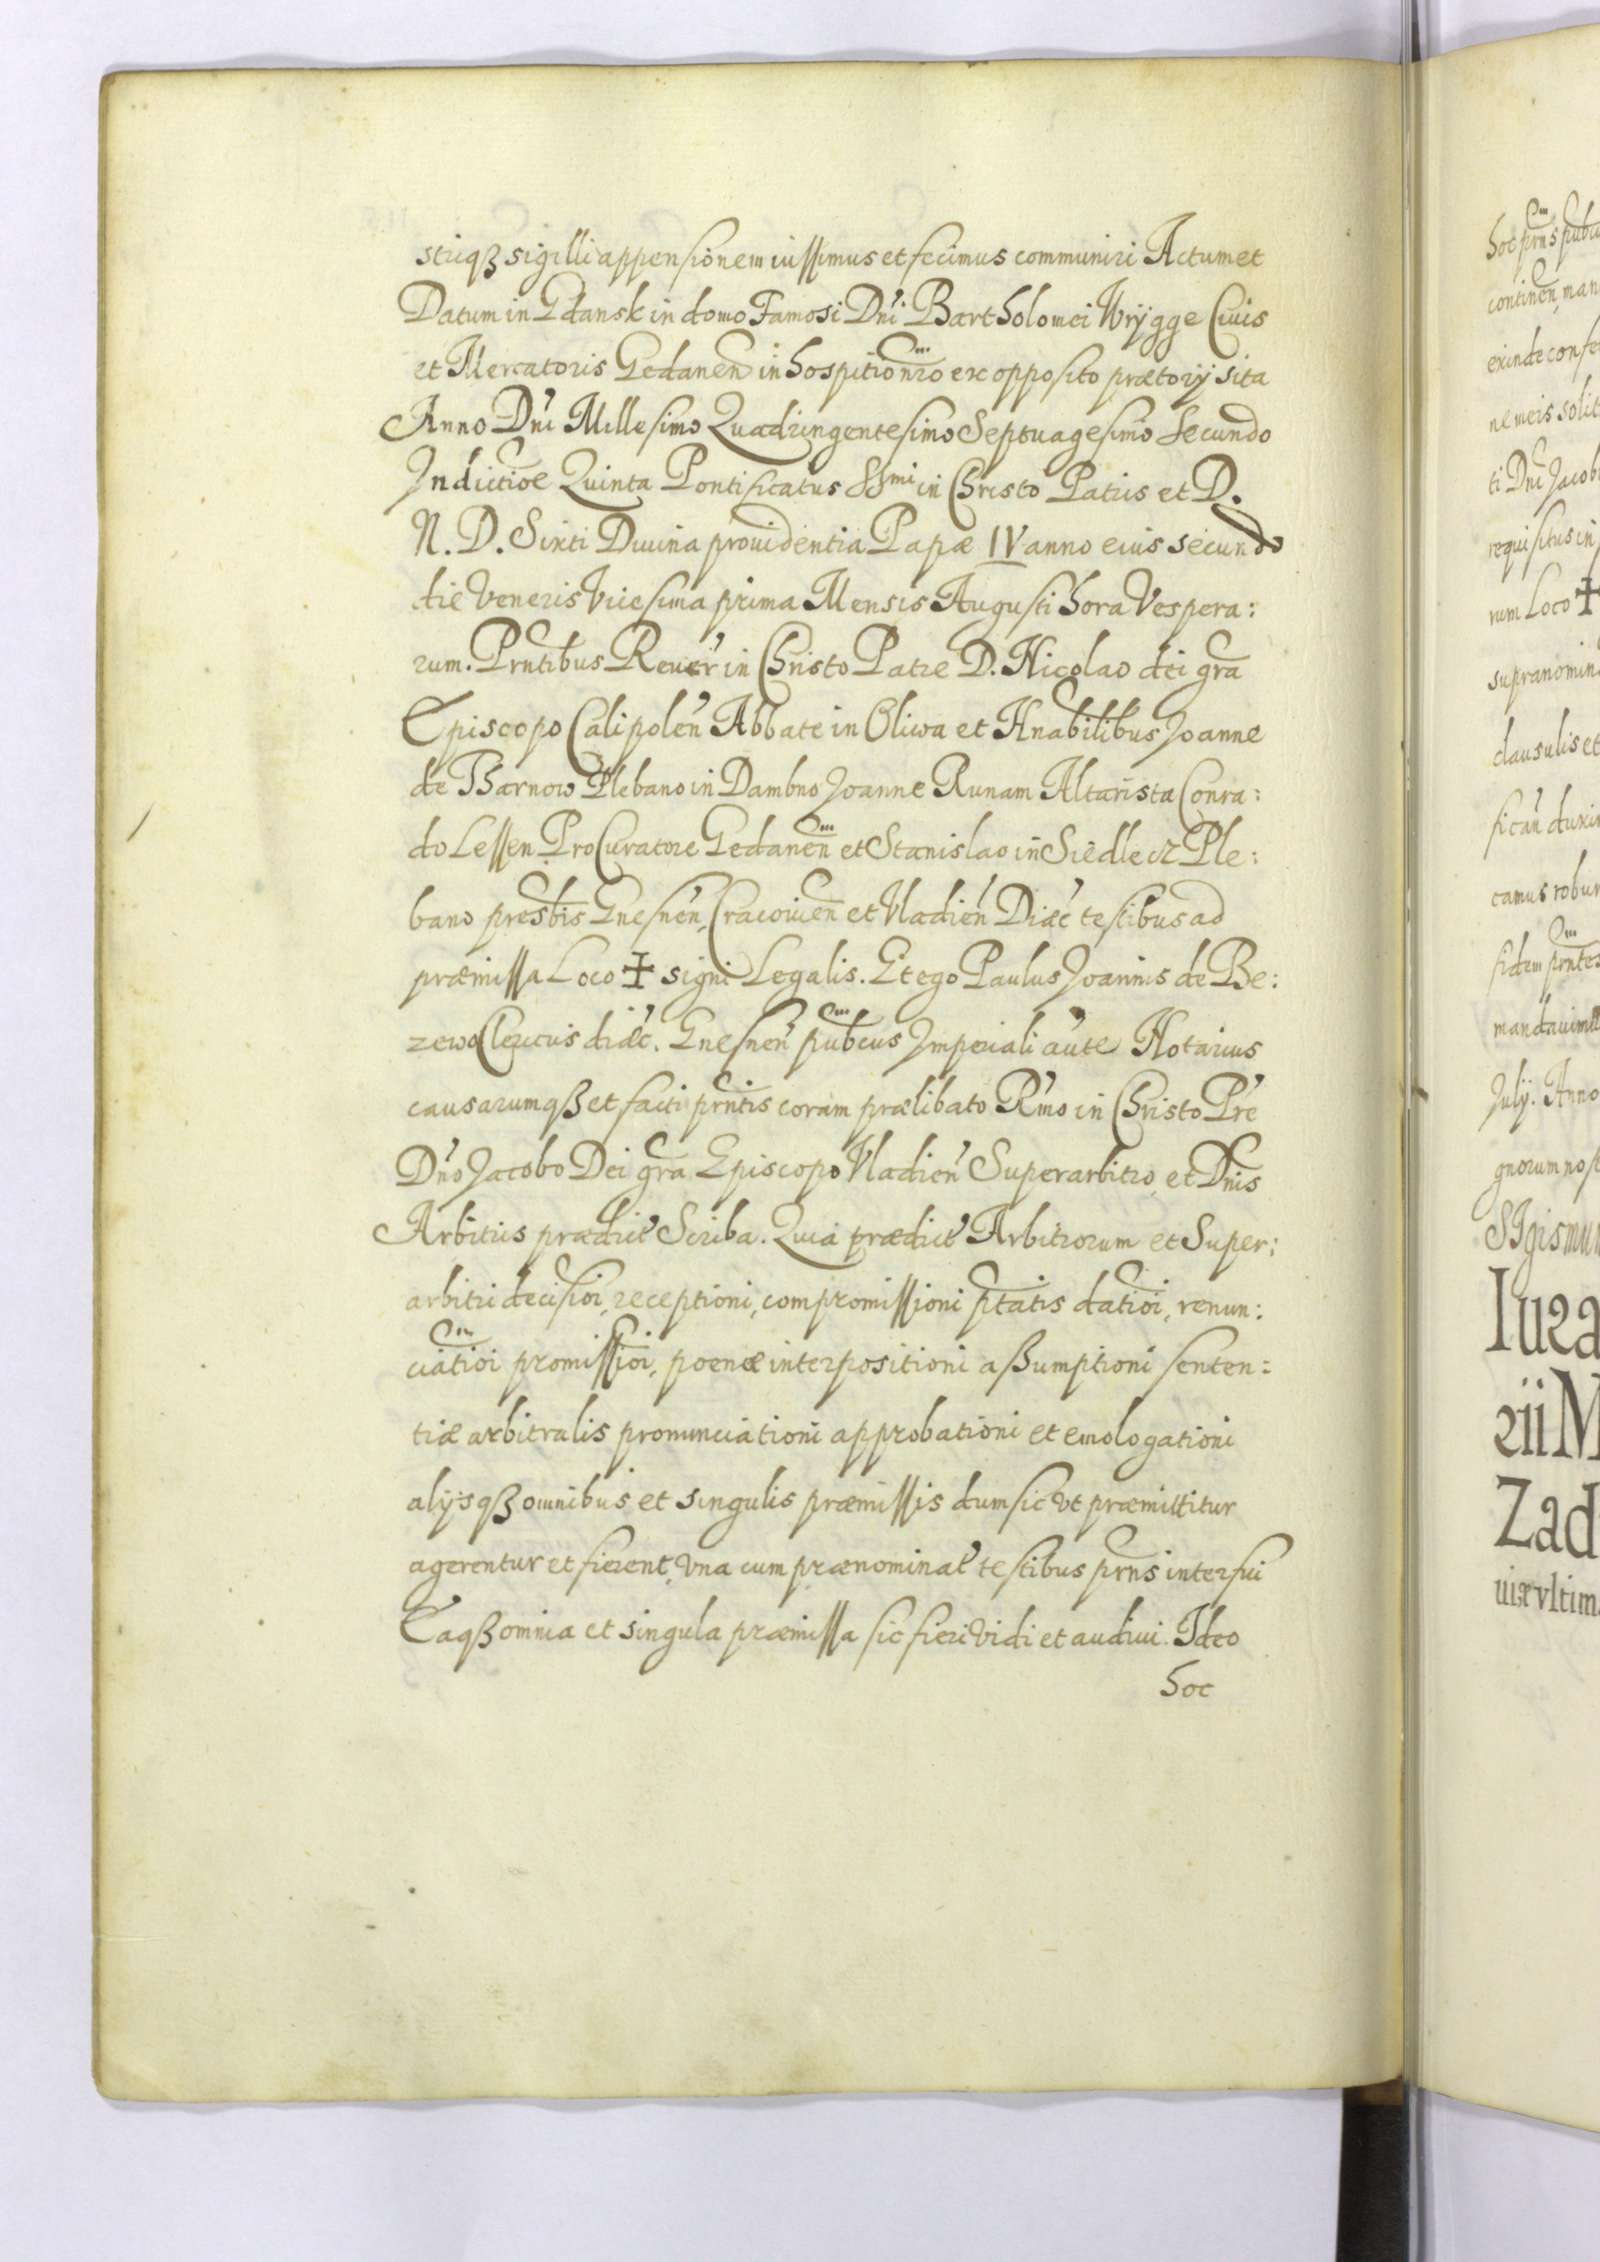 striqꝫ sigilli appensionem iussimus et fecimus communiri Actum et
Datum in Gdansk in domo Famosi Dni Bartholomei Wrÿgge Civis
et Mercatoris Gedanen in hospitio nro ex opposito prætorij sita
Anno Dni Millesimo Quadringentesimo Septuagesimo Secundo
Indictioe Quinta Pontificatus SSmi in Christo Patris et D.
N. D. Sixti Divina providentia Papæ IV anno eius secundo
die Veneris Vicesima prima Mensis Augusti hora Vespera:
rum. Prntibus Rever in Christo Patre D. Nicolao dei gra
Episcopo Calipolen Abbate in Oliwa et Hnabilibus Joanne
de Barnow Plebano in Dambno Joanne Runam Altarista Conra:
do Lessen ProCuratore Gedanen et Stanislao in Siedlecz Ple:
bano presbis Gnesnen, Cracovien et Vladien Diæc testibus ad
præmissa Loco ✝ signi Legalis. Et ego Paulus Joannis de Be:
zewo Clericus diæc. Gnesnen pubcus Imperiali aute Notarius
causarumqꝫ et facti prntis coram prælibato Rmo in Christo Pre
Dno Jacobo Dei gra Episcopo Vladien Superarbitro, et Dnis
Arbitris prædict Scriba. Quia prædict Arbitrorum et Super:
arbitri decisioi, receptioni, compromissioni ptatis datioi, renun:
ciatioi promissioi, poenæ interpositioni assumptioni senten:
tiæ arbitralis pronunciationi approbationi et emologationi
alijsqꝫ omnibus et singulis præmissis dum sic vt præmittitur
agerentur et fierent, vna cum prænominat testibus prns interfui
Eaqꝫ omnia et singula præmissa sic fieri vidi et audivi. Ideo
hoc
hoc prns pub
continen, man
exinde conf
ne meis solit
ti Dni Jacob
requisitus in
rum Loco ✝
supranomin
clausulis et
fican duxi
camus robur
fidem prntes
mandavim
Julij. Anno
gnorum nos
SIgismun
Iura
rii M
Zad
uiæ vltim